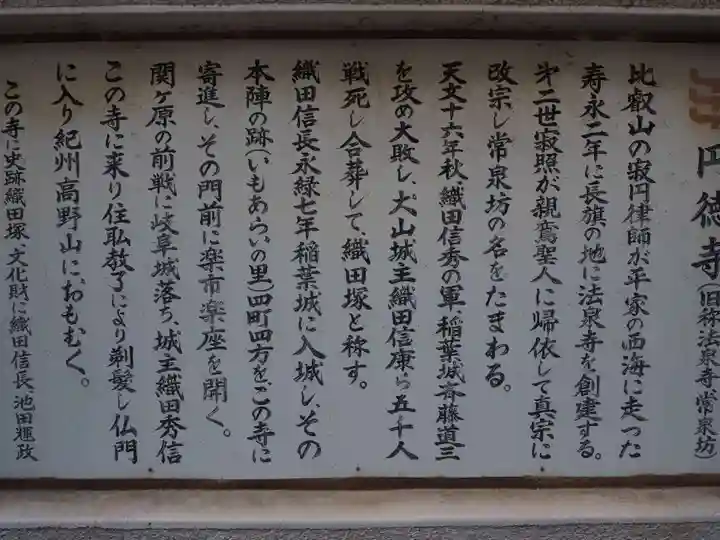 円徳寺(旧称法泉寺・常泉坊)
比叡山の寂円律師が平家の西海に走った
寿永二年に長旗の地に法泉寺を創建する。
㐧二世寂照が親鸞聖人に帰依して真宗に
改宗し常泉坊の名をたまわる。
天文十六年秋、織田信秀の軍、稲葉城斉藤道三
を攻め大敗し、犬山城主織田信康ら五千人
戦死し合葬して、織田塚と称す。
織田信長永緑七年稲葉城に入城し、その
本陣の跡(いもあらいの里)四町四方をこの寺に
寄進し、その門前に楽市楽座を開く。
関ヶ原の前戦に岐阜城落ち、城主織田秀信
この寺に来り住職教了により剃髪し仏門
に入り紀州高野山に、おもむく。
この寺に史跡織田塚、文化財に織田信長、池田輝政